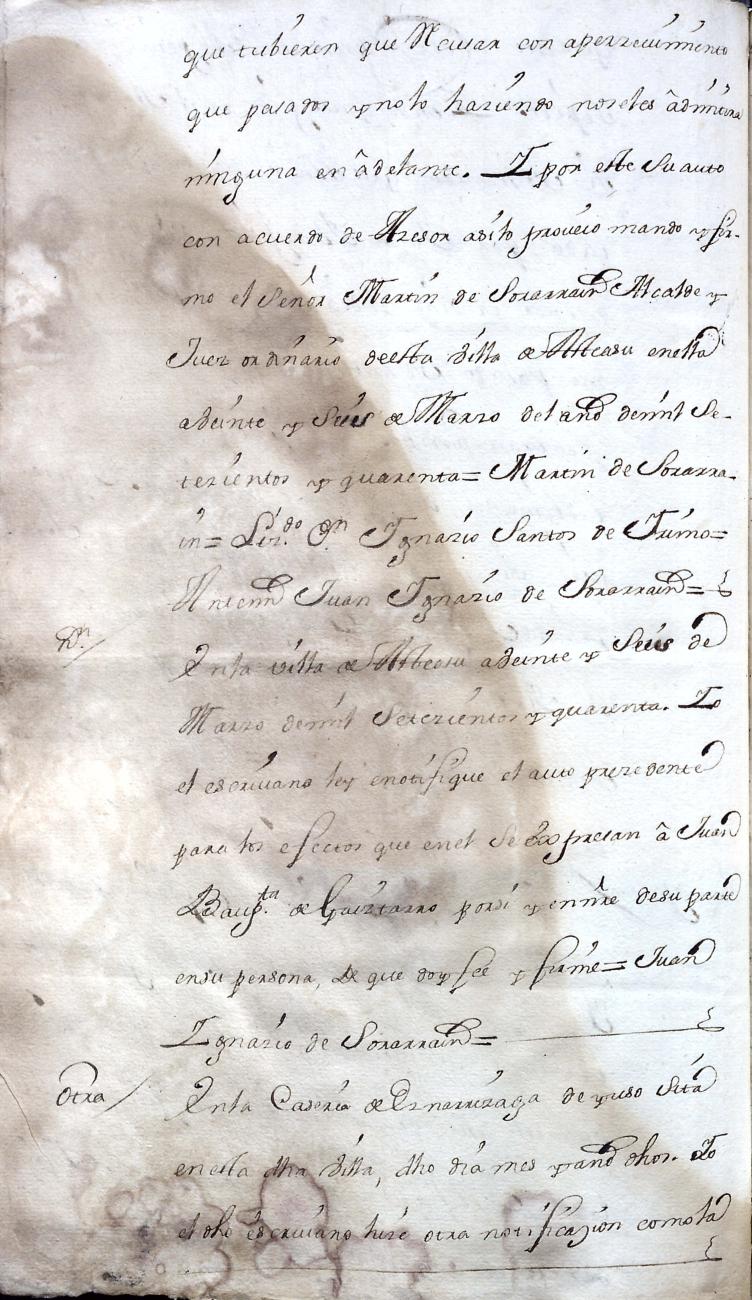 que tubieren que Recusar con aperzeuimiento
que pasados y no lo haziendo no se les âdmitira
ninguna en âdelante. I por este su auto
con acuerdo de Azesor asi lo proueio mando y fir-
mo el Señor Martin de Sorarrain Alcalde y
Juez ordinario de esta villa de Albeasu en ella
a veinte y Seis de Marzo del año de mil Se-
tezientos y quarenta= Martin de Sorarra-
in= Liz.do Dn Ignazio Santos de =
Antemi Juan Ignazio de Sorarrain=
Rn./
En la villa de Albeasu a veinte y Seis de
Marzo de mil Setezientos y quarenta. Io
el escriuano ley e notifique el auto prezedente
para los efectos que en el Se Expresan â Juan
Baup.ta de Guiztarro por si y en nre de su parte
en su persona, de que doy fee y firme= Juan
Ignazio de Sorarrain=
Otra/
En la Caseria de Eznarrizaga de yuso Sita
en esta dha villa, dho dia mes y año dhos. Io
el dho escriuano hize otra notificazion como la